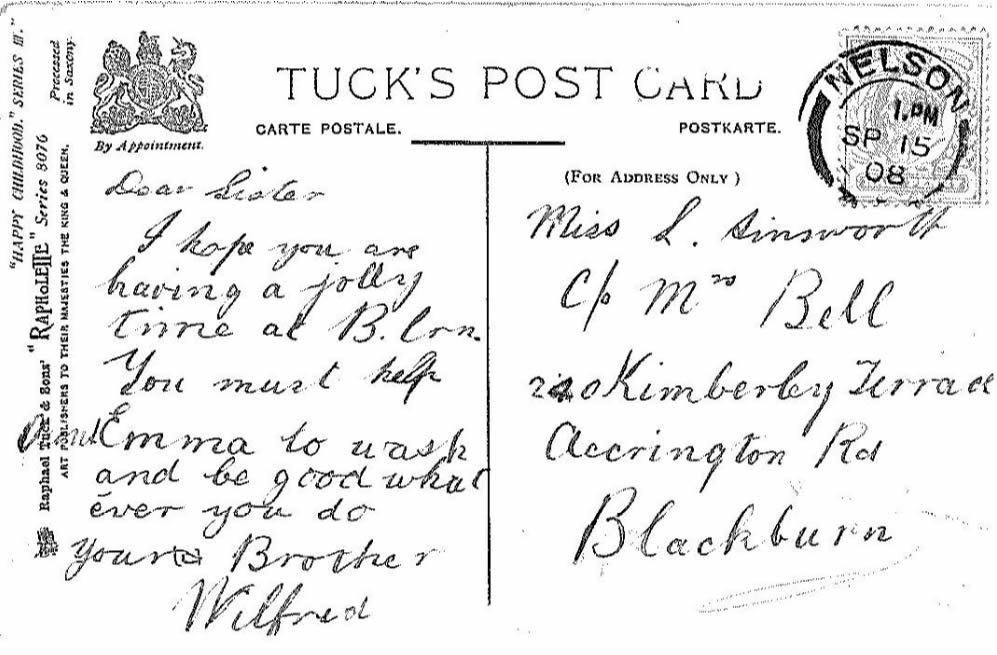 "HAPPY CHILDHOOD." SERIES III.
Raphael Tuck & Sons' "RAPHOLETTE" Series 8076
Processed in Saxony.
ART PUBLISHERS TO THEIR MAJESTIES THE KING & QUEEN.
By Appointment.
TUCK'S POST CARD
CARTE POSTALE.
POSTKARTE.
(FOR ADDRESS ONLY)
NELSON
1.PM
SP 15
08
Dear Sister
I hope you are
having a jolly
time at B.brn.
You must help
Aunt Emma to wash
and be good what
ever you do
Your Brother
Wilfred
Miss L. Ainsworth
c/o Mrs Bell
Kimberley Terrace
Accrington Rd
Blackburn